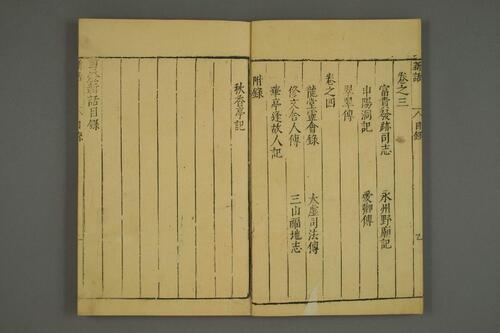 新話
目錄
卷之三
富貴發跡司志
永州野廟記
申陽洞記
愛卿傳
翠翠傳
卷之四
龍堂靈會錄
太虛司法傳
修文舍人傳
三山福地志
華亭逢故人記
附錄
秋香亭記
新話目錄